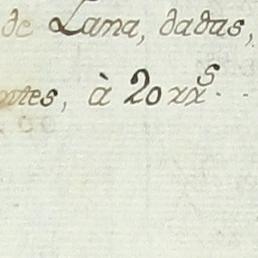 de Lana, dadas,
ntes, à 20 xx^s..